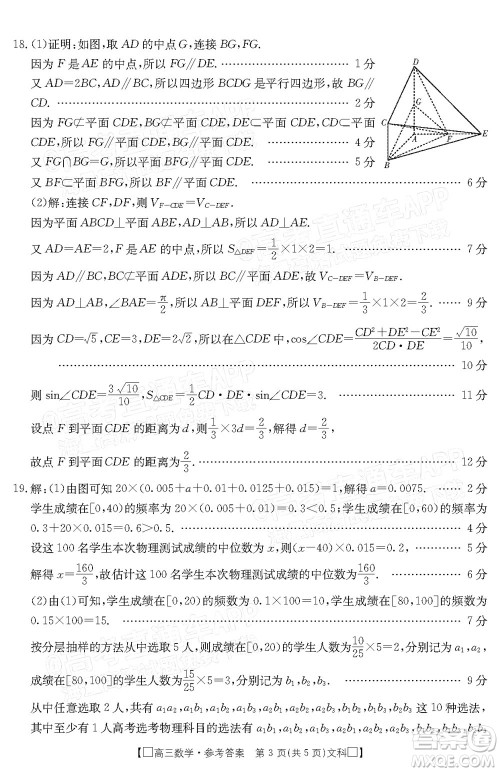 18. (1)证明:如图,取 AD 的中点 G,连接 BG,FG.
因为 F 是 AE 的中点,所以 FG∥DE. ………… 1 分
又 AD=2BC,AD∥BC,所以四边形 BCDG 是平行四边形,故 BG∥
CD. ………… 2 分
因为 FG⊄平面 CDE,BG⊄平面 CDE,DE⊂平面 CDE,CD⊂平面
CDE,所以 FG∥平面 CDE,BG∥平面 CDE. ………… 4 分
又 FG∩BG=G,所以平面 BFG∥平面 CDE. ………… 5 分
又 BF⊂平面 BFG,所以 BF∥平面 CDE. ………… 6 分
D
G
C
A
F
E
B
(2)解:连接 CF,DF,则 V_{F-CDE}=V_{C-DEF}.
因为平面 ABCD⊥平面 ADE,所以 AB⊥平面 ADE.
又 F 是 AE 的中点,所以 S_{△DEF}=1/2×1×2=1. ………… 7 分
因为 AD⊥AB,∠BAE=π/2,所以 AB⊥平面 DEF,所以 V_{B-DEF}=1/3×1×2=2/3. ………… 9 分
因为 CD=√5,CE=3,DE=2√2,所以 cos∠CDE=(CD²+DE²-CE²)/(2CD·DE)=√10/10,
………… 10 分
则 sin∠CDE=3√10/10,S_{△CDE}=1/2 CD·DE·sin∠CDE=3.
设点 F 到平面 CDE 的距离为 d,则 1/3×3d=2/3,解得 d=2/3,
故点 F 到平面 CDE 的距离为 2/3. ………… 12 分
19. 解:(1)由图可知 20×(0.005+a+0.01+0.0125+0.015)=1,解得 a=0.0075. …… 2 分
学生成绩在[0,40)的频率为 20×(0.005+0.01)=0.3<0.5;学生成绩在[0,60)的频率为
0.3+20×0.015=0.6>0.5. ………… 4 分
设这 100 名学生本次物理测试成绩的中位数为 x,则(x-40)×0.015=0.2, ………… 5 分
解得 x=160/3,故估计这 100 名学生本次物理测试成绩的中位数为 160/3. ………… 6 分
(2)由(1)可知,学生成绩在[0,20)的频数为 0.1×100=10,学生成绩在[80,100]的频数为
0.15×100=15. ………… 7 分
按分层抽样的方法从中选取 5 人,则成绩在[0,20)的学生人数为 10/25×5=2,分别记为 a₁,a₂;成
绩在[80,100]的学生人数为 15/25×5=3,分别记为 b₁,b₂,b₃. ………… 9 分
从中任意选取 2 人,有 a₁a₂,a₁b₁,a₁b₂,a₁b₃,a₂b₁,a₂b₂,a₂b₃,b₁b₂,b₁b₃,b₂b₃ 这 10 种选法,
其中至少有 1 人高考选考物理科目的选法有 a₁b₁,a₁b₂,a₁b₃,a₂b₁,a₂b₂,a₂b₃,b₁b₂,b₁b₃,
【□高三数学·参考答案 第 3 页(共 5 页)文科□】